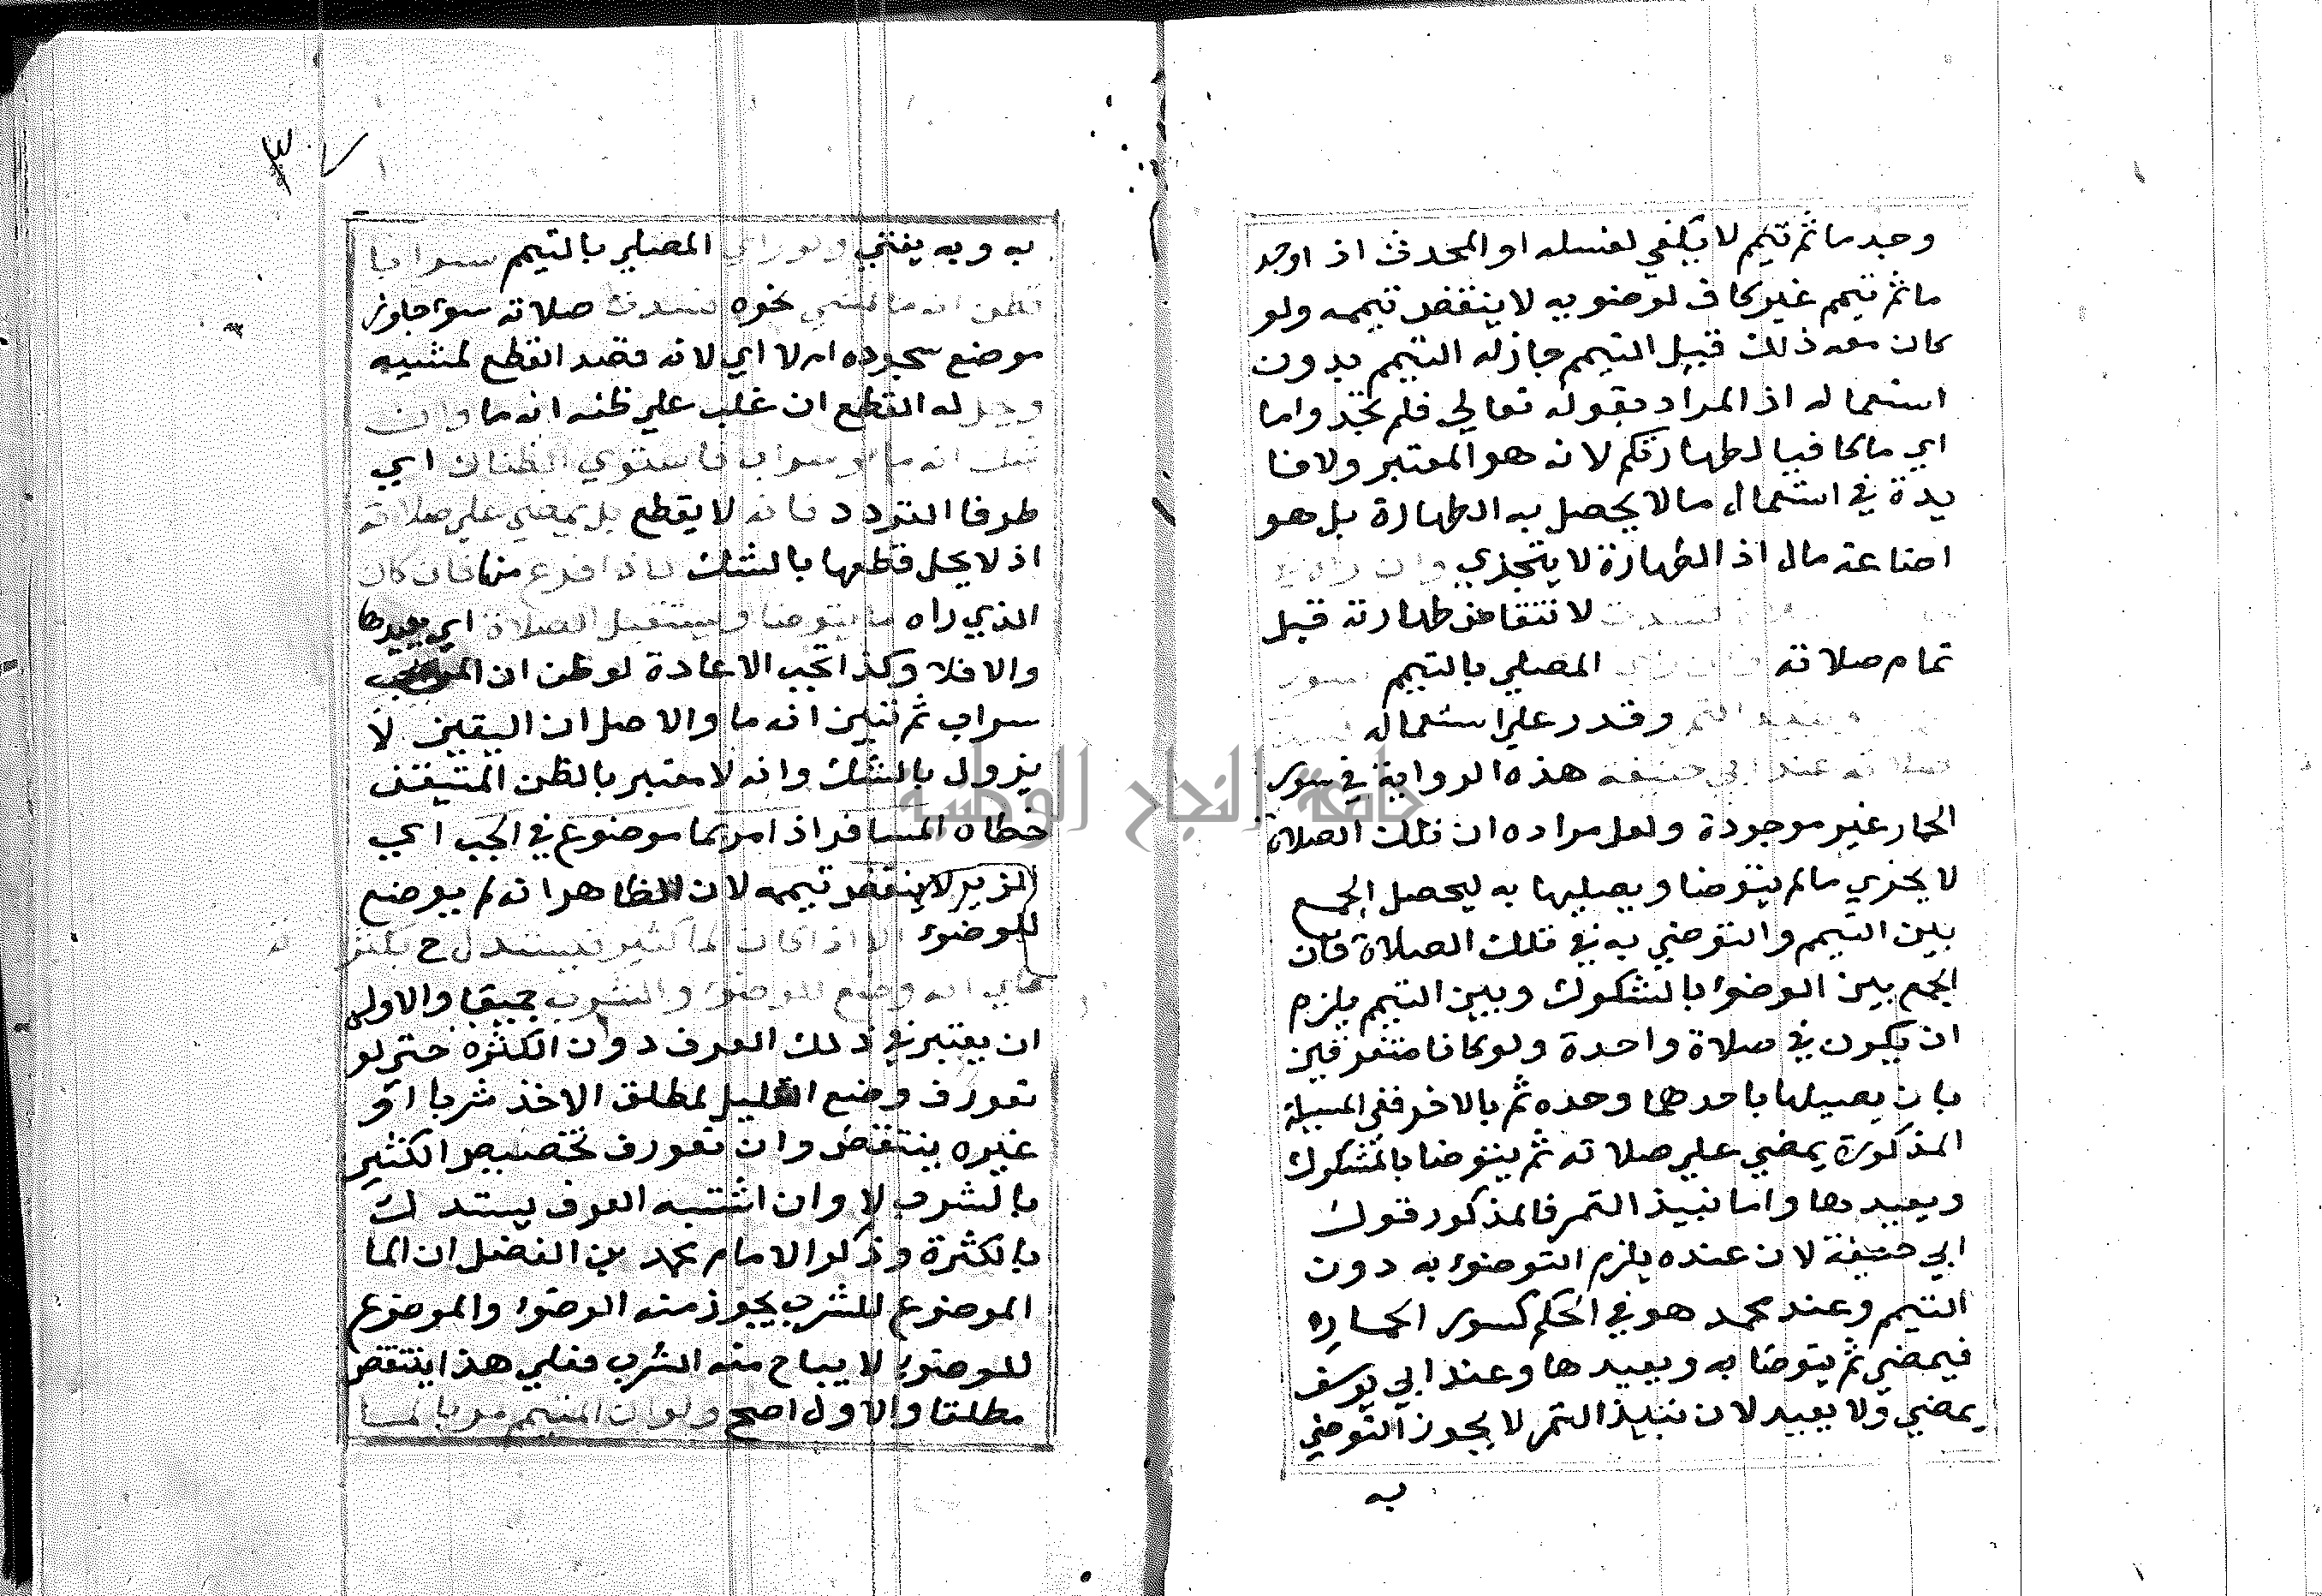 وجد ما ثم تيمم لا يكفي لغسله او المحدث اذ اوجد
ما ثم تيمم غير كاف لوضويه لا ينتقض تيممه ولو
كان معه ذلك قبل التيمم جاز له التيمم بدون
استعماله اذ المراد بقوله تعالي فلم تجدوا ما
اي ما كافيا لطهارتكم لانه هو المعتبر ولا فا
يدة في استعمال ما لا يحصل به الطهارة بل هو
اضاعة مال اذ الطهارة لا يتجزي وان راه في
فسدت لانتقاض طهارته قبل
تمام صلاته المصلي بالتيمم سور
وقدر علي استعماله
صلاته عند ابي حنيفة هذه الرواية في سور
الحمار غير موجودة ولعل مراده ان تلك الصلاة
لا يجزي ما لم يتوضا ويصليها به ليحصل الجمع
بين التيمم والتوضي به في تلك الصلاة فان
الجمع بين الوضوء بالمشكوك وبين التيمم يلزم
ان يكون في صلاة واحدة ولو كانا متفرقين
بان يصليها باحدهما وحده ثم بالاخر ففي المسيلة
المذكورة يمضي علي صلاته ثم يتوضا بالمشكوك
ويعيدها واما نبيذ التمر فالمذكور قول
ابي حنيفة لان عنده يلزم التوضوء به دون
التيمم وعند محمد هو في الحكم كسور الحمار
فيمضي ثم يتوضا به ويعيدها وعند ابي يوسف
يمضي ولا يعيد لان نبيذ التمر لا يجوز التوضي
به
به وبه يفتي ولو راي المصلي بالتيمم سرابا
فظن انه ما فمشي نحوه فسدت صلاته سوا جاوز
موضع سجوده ام لا اي لانه قصد القطع لمشيه
وحل له القطع ان غلب علي ظنه انه ما وان
شك انه ما او سراب فاستوي الظنان اي
طرفا التردد فانه لا يقطع بل يمضي علي صلاته
اذ لا يحل قطعها بالشك فاذا فرغ منها فان كان
الذي راه ما يتوضا ويستقبل الصلاة اي يعيدها
والا فلا وكذا تجب الاعادة لو ظن ان
سراب ثم تبين انه ما والاصل ان اليقين لا
يزول بالشك وانه لا معتبر بالظن المتيقن
خطاه المسافر اذا مر بما موضوع في الجب اي
الزير لا ينتقض تيممه لان الظاهر انه لم يوضع
للوضوء الا اذا كان الما كثير فيستدل ح بكثرته
علي انه وضع للوضوء والشرب جميعا والاولي
ان يعتبر في ذلك العرف دون الكثرة حتي لو
تعورف وضع القليل لمطلق الاخذ شربا او
غيره ينتقض وان تعورف تخصيص الكثير
بالشرب لا وان اشتبه العرف يستدل
بالكثرة وذكر الامام محمد بن الفضل ان الما
الموضوع للشرب يجوز منه الوضوء والموضوع
للوضوء لا يباح منه الشرب فعلي هذا ينتقض
مطلقا والاول اصح ولو ان المتيمم مر بالما
جامعة النجاح الوطنية